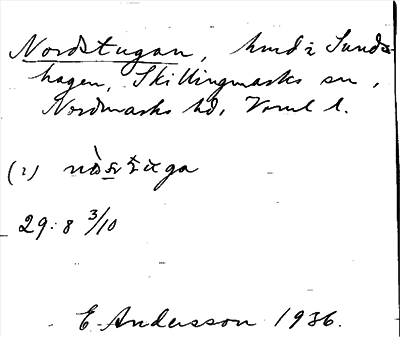 Nordstugan, hmd i Sunds-
hagen, Skillingmarks sn,
Nordmarks hd, Vrml l.
(i)
29:8 3/10
E. Andersson 1936.